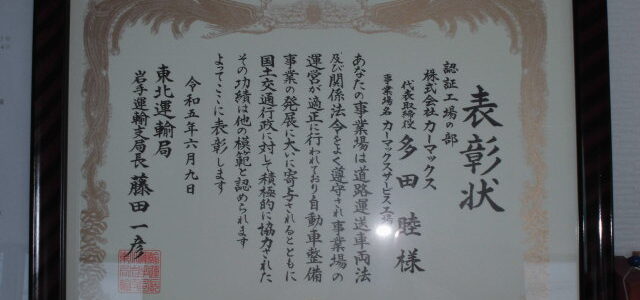 表彰状
認証工場の部
株式会社カーマックス
代表取締役 多田 睦 様
事業場名 カーマックスサービス工場
あなたの事業場は道路運送車両法
及び関係法令をよく遵守され事業場の
運営が適正に行われており自動車整備
事業の発展に大いに寄与されるとともに
国土交通行政に対して積極的に協力された
その功績は他の模範と認められます
よってここに表彰します
令和五年六月九日
東北運輸局
岩手運輸支局長 藤田一彦